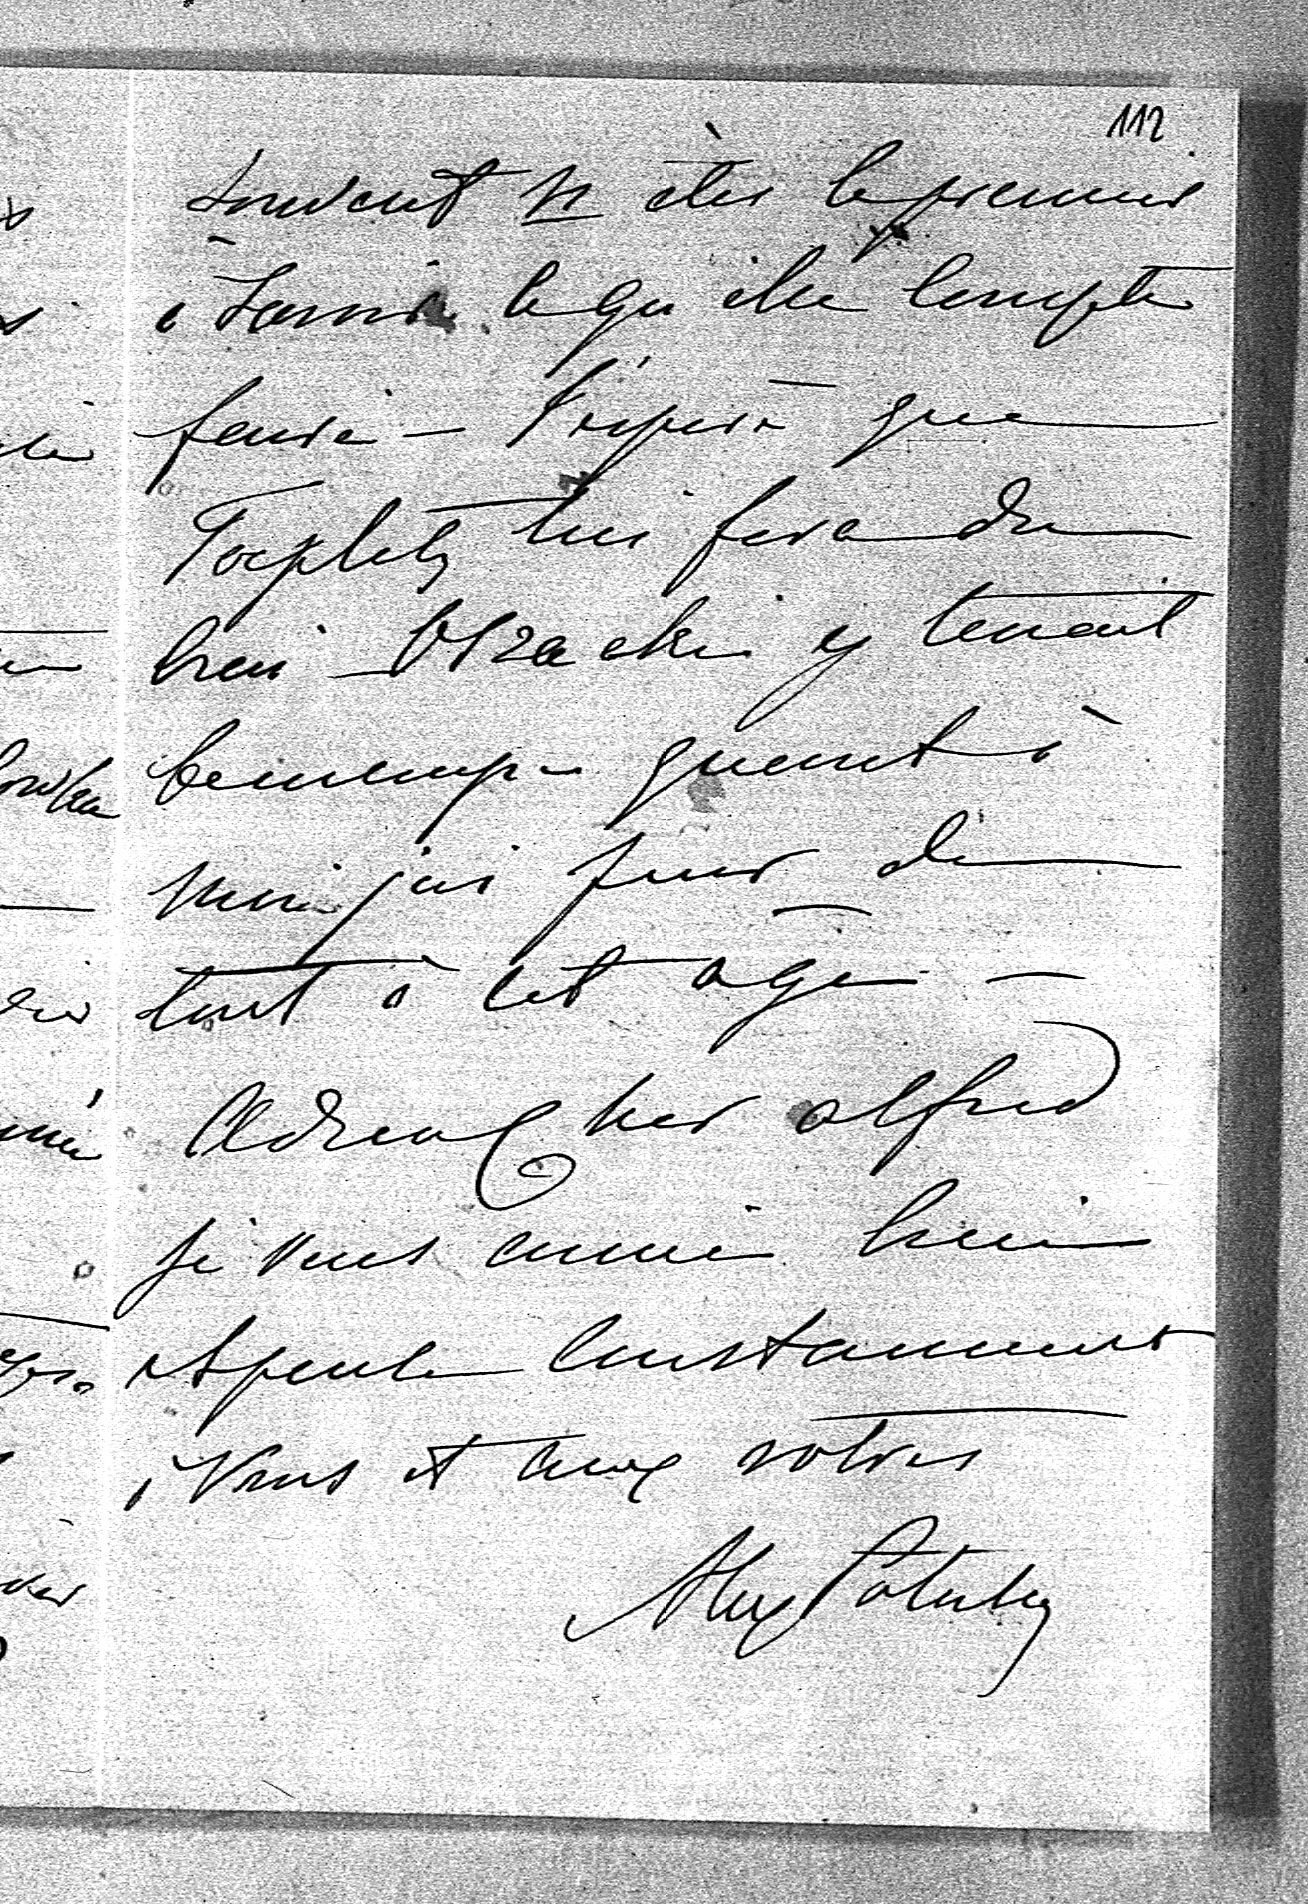 112
souvent n êtes le premier
à savoir ce qu'elle compte
faire — J'espère que
Toeplitz lui fera du
bien — y tenait
beaucoup — quant à
moi j'ai peur de
tout à cet âge —
Adieu cher Alfred
je vous aime bien
et pense constamment
à vous et aux votres
Alex Potocky